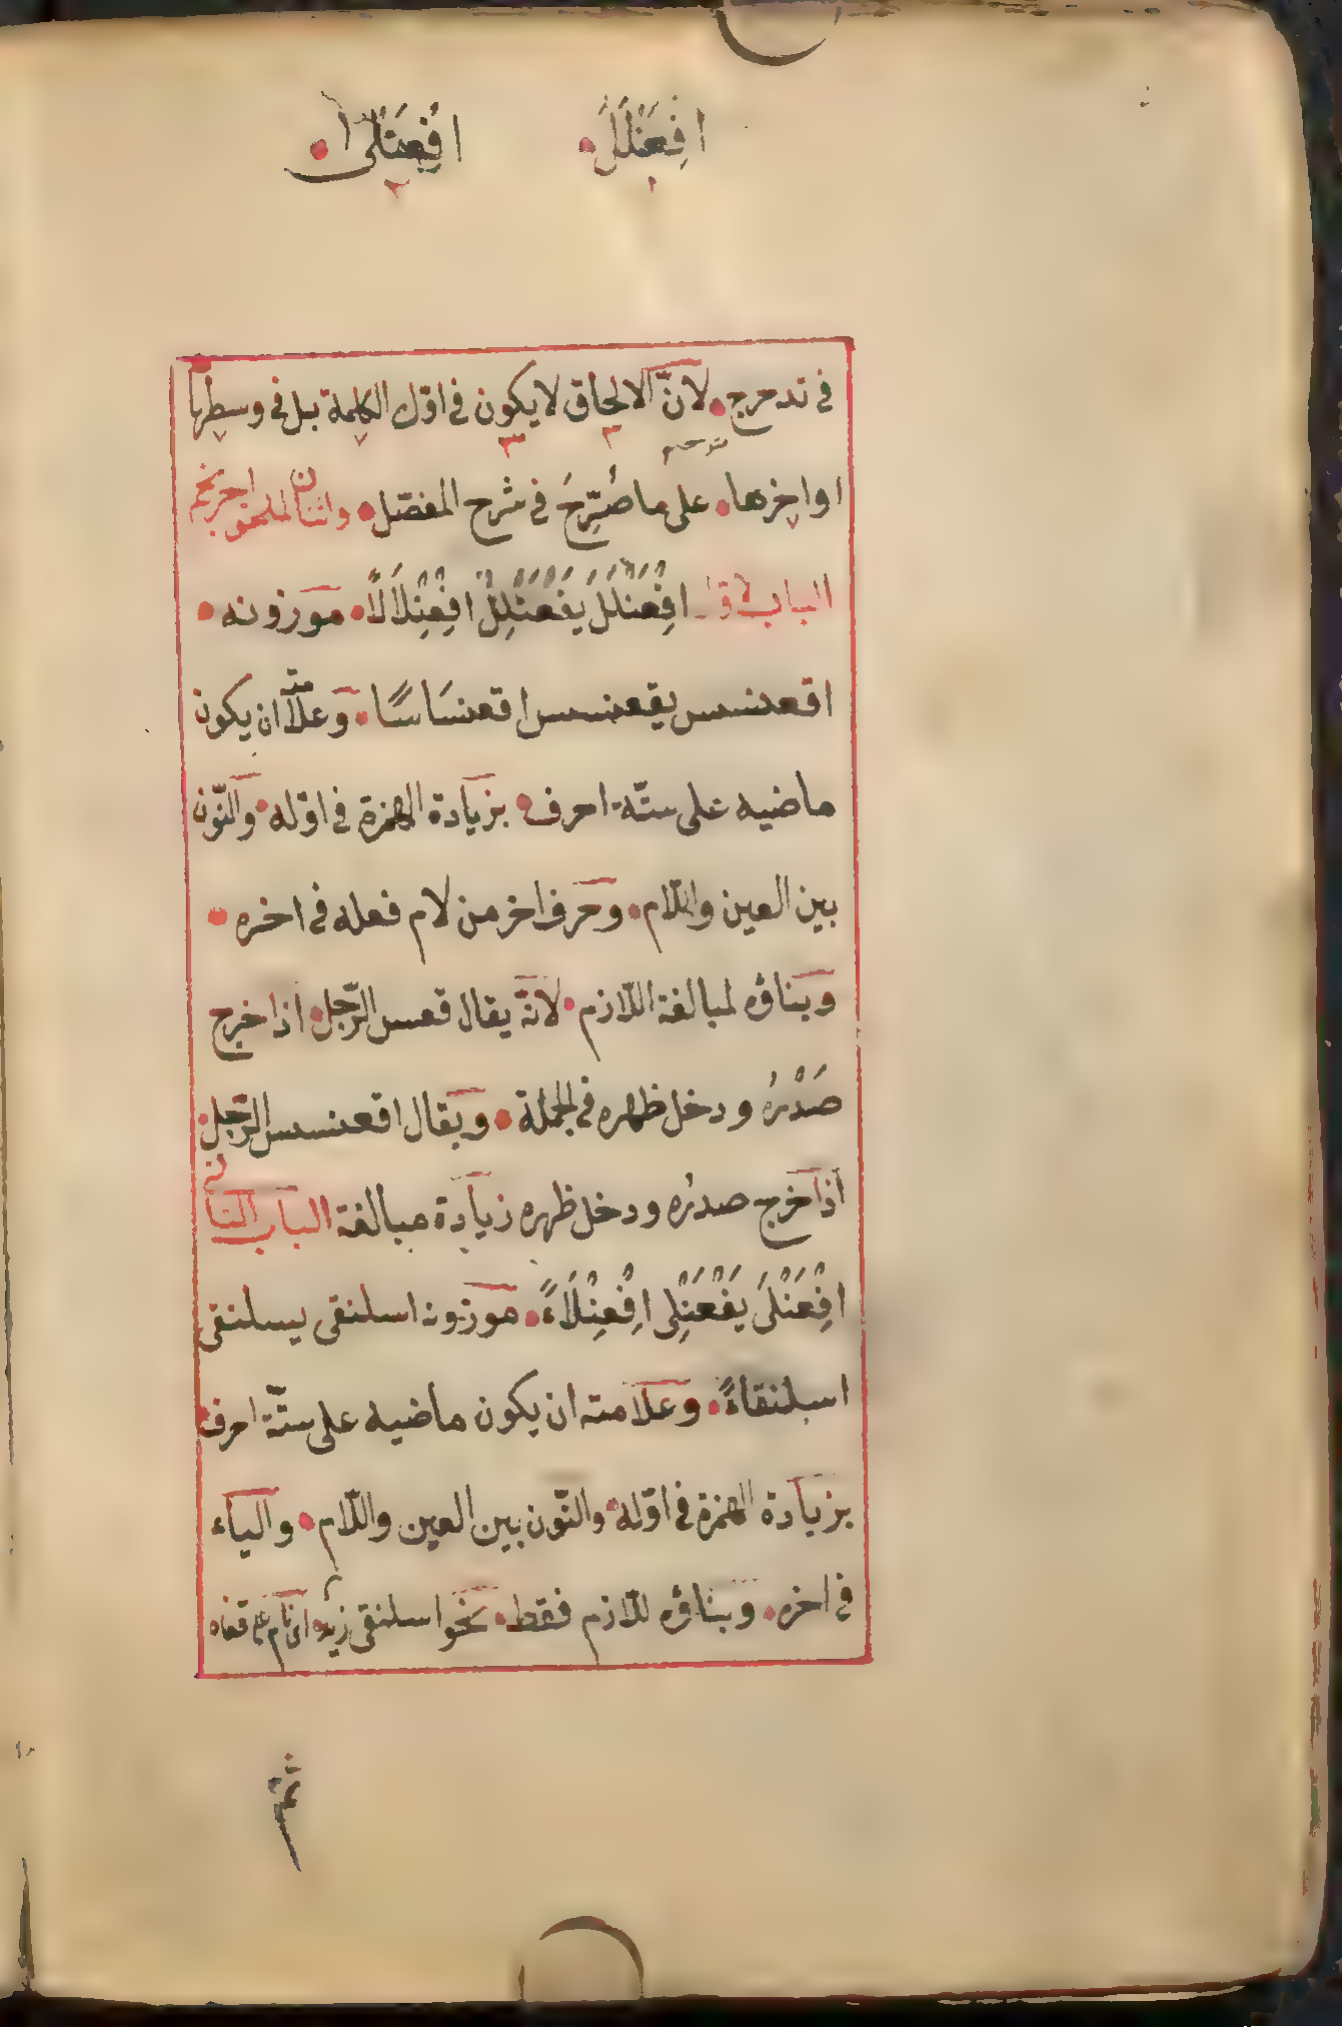 افْعَنْلَلَ افْعَنْلَى
فى تدحرج لانّ الالحاق لا يكون فى اوّل الكلمة بل فى وسطها
او اخرها على ما صُرِّحَ فى شرح المفصّل واثنان لملحق احرنجم
الباب الاول افْعَنْلَلَ يَفْعَنْلِلُ افْعِنْلَالًا موزونه
اقعنسس يقعنسس اقعنسَاسًا وعلامته ان يكون
ماضيه على ستّة احرف بزيادة الهمزة فى اوّله والنّون
بين العين واللّام وحرف اخر من لام فعله فى اخره
وبناؤه لمبالغة اللّازم لانّه يقال قعس الرّجل اذا خرج
صَدْرُه ودخل ظهره فى الجملة ويقال اقعنسس الرّجل
اذا خرج صدرُه ودخل ظهره زيادة مبالغة الباب الثانى
افْعَنْلَى يَفْعَنْلِى افْعِنْلَاءً موزونه اسلنقى يسلنقى
اسلنقاءً وعلامته ان يكون ماضيه على ستّة احرف
بزيادة الهمزة فى اوّله والنّون بين العين واللّام والياء
فى اخره وبناؤه للّازم فقط نحو اسلنقى زيد اى نام على قفاه